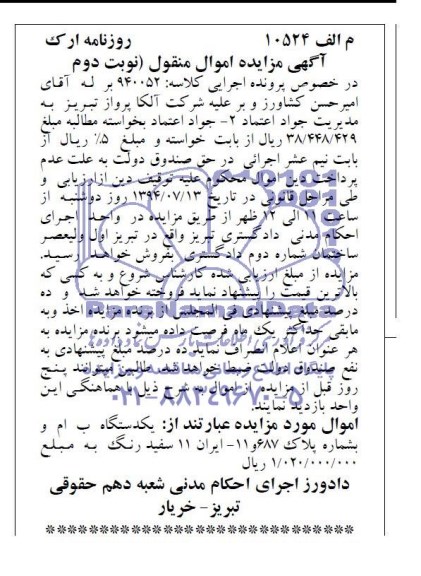 م الف ۱۰۵۲۴ روزنامه ارک
آگهی مزایده اموال منقول (نوبت دوم
در خصوص پرونده اجرایی کلاسه: ۹۴۰۰۵۲ بر له آقای
امیرحسن کشاورز و بر علیه شرکت آلکا پرواز تبریز به
مدیریت جواد اعتماد ۲- جواد اعتماد بخواسته مطالبه مبلغ
۳۸/۴۴۸/۴۲۹ ریال از بابت خواسته و مبلغ ۵٪ ریال از
بابت نیم عشر اجرائی در حق صندوق دولت به علت عدم
پرداخت دین اموال محکوم علیه توقیف دین ازارزیابی و
طی مراحل قانونی در تاریخ ۱۳۹۴/۰۷/۱۳ روز دوشنبه از
ساعت ۱۱ الی ۱۲ ظهر از طریق مزایده در واحد اجرای
احکام مدنی دادگستری تبریز واقع در تبریز اول ولیعصر
ساختمان شماره دوم دادگستری بفروش خواهد رسید.
مزایده از مبلغ ارزیابی شده کارشناس شروع و به کسی که
بالاترین قیمت را پیشنهاد نماید فروخته خواهد شد و ده
درصد مبلغ پیشنهادی فی المجلس از برنده مزایده اخذ وبه
مابقی حداکثر یک ماه فرصت داده میشود برنده مزایده به
هر عنوان اعلام انصراف نماید ده درصد مبلغ پیشنهادی به
نفع صندوق دولت ضبط خواهد شد. طالبین میتوانند پنج
روز قبل از مزایده از اموال به شرح ذیل با هماهنگی این
واحد بازدید نمایند.
اموال مورد مزایده عبارتند از: یکدستگاه ب ام و
بشماره پلاک ۶۸۷و۱۱- ایران ۱۱ سفید رنگ به مبلغ
۱/۰۲۰/۰۰۰/۰۰۰ ریال
دادورز اجرای احکام مدنی شعبه دهم حقوقی
تبریز - خریار
ParsNamadData
۰۲۱-۸۸۳۴۹۶۷۰-۵